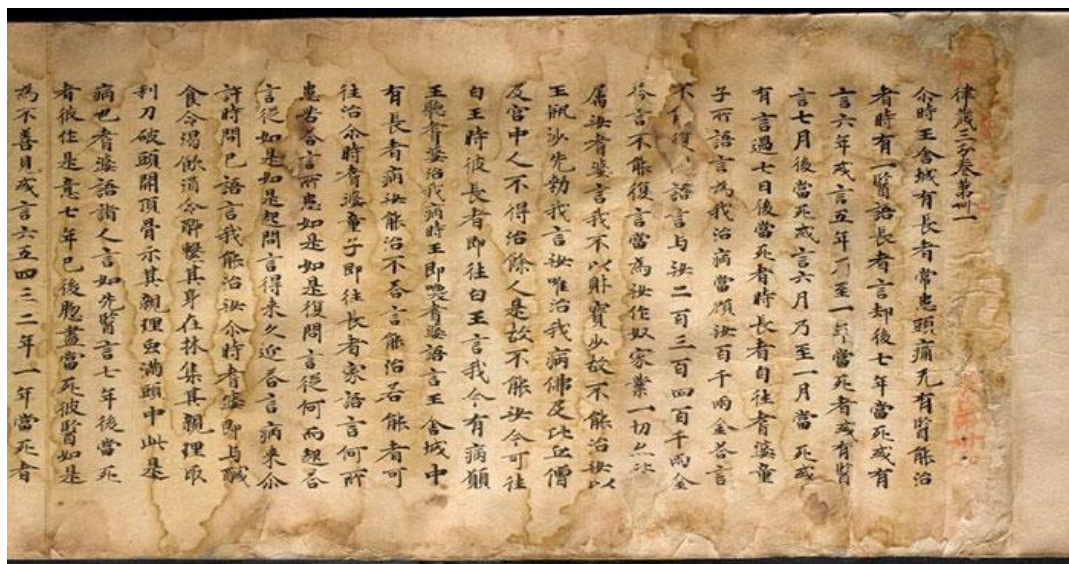 律藏三分卷第卌一
尒時王舍城有長者常患頭痛无有醫能治
者時有一醫語長者言却後七年當死或有
言六年或言五年乃至一年當死者或有醫
言七月後當死或言六月乃至一月當死或
有言過七日後當死者時長者自往耆婆童
子所語言為我治病當顧汝百千兩金荅言
不復語言与汝二百三百四百千兩金
荅言不能復言當為汝作奴家業一切
属汝耆婆言我不以財寶少故不能治汝以
王瓶沙先勑我言汝唯治我病佛及比丘僧
及宮中人不得治餘人是故不能汝今可往
白王時彼長者即往白王言我今有病願
王聽耆婆治我病時王即喚耆婆語言王舍城中
有長者病汝能治不荅言能治若能者可
往治尒時耆婆童子即往長者家語言何所
患苦荅言所患如是如是復問言從何而起荅
言從如是如是起問言得来久近荅言病来尒
許時問已語言我能治汝尒時耆婆即与醎
食令渴飲酒令醉繫其身在牀集其親理取
利刀破頭開頂骨示其親理虫滿頭中此是
病也耆婆語諸人言如先醫言七年後當死
者彼作是意七年已後𦛁盡當死彼醫如是
為不善見或言六五四三二年一年當死者